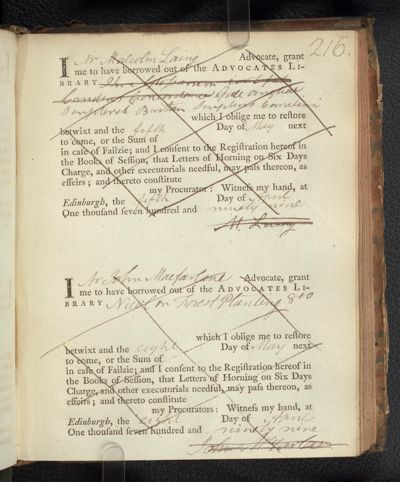 216.
I Mr Malcolm Laing Advocate, grant
me to have borrowed out of the ADVOCATES LI-
BRARY
which I oblige me to reſtore
betwixt and the fifth Day of May next
to come, or the Sum of
in caſe of Failzie; and I conſent to the Regiſtration hereof in
the Books of Seſſion, that Letters of Horning on Six Days
Charge, and other executorials needful, may paſs thereon, as
effeirs; and thereto conſtitute
my Procurator: Witneſs my hand, at
Edinburgh, the fifth Day of April
One thouſand ſeven hundred and ninety nine
M Laing
I Mr John Macfarlane Advocate, grant
me to have borrowed out of the ADVOCATES LI-
BRARY Nicol on Forest Planting 8vo
which I oblige me to reſtore
betwixt and the eight Day of May next
to come, or the Sum of
in caſe of Failzie; and I conſent to the Regiſtration hereof in
the Books of Seſſion, that Letters of Horning on Six Days
Charge, and other executorials needful, may paſs thereon, as
effeirs; and thereto conſtitute
my Procurators: Witneſs my hand, at
Edinburgh, the eight Day of April
One thouſand ſeven hundred and ninety nine
John